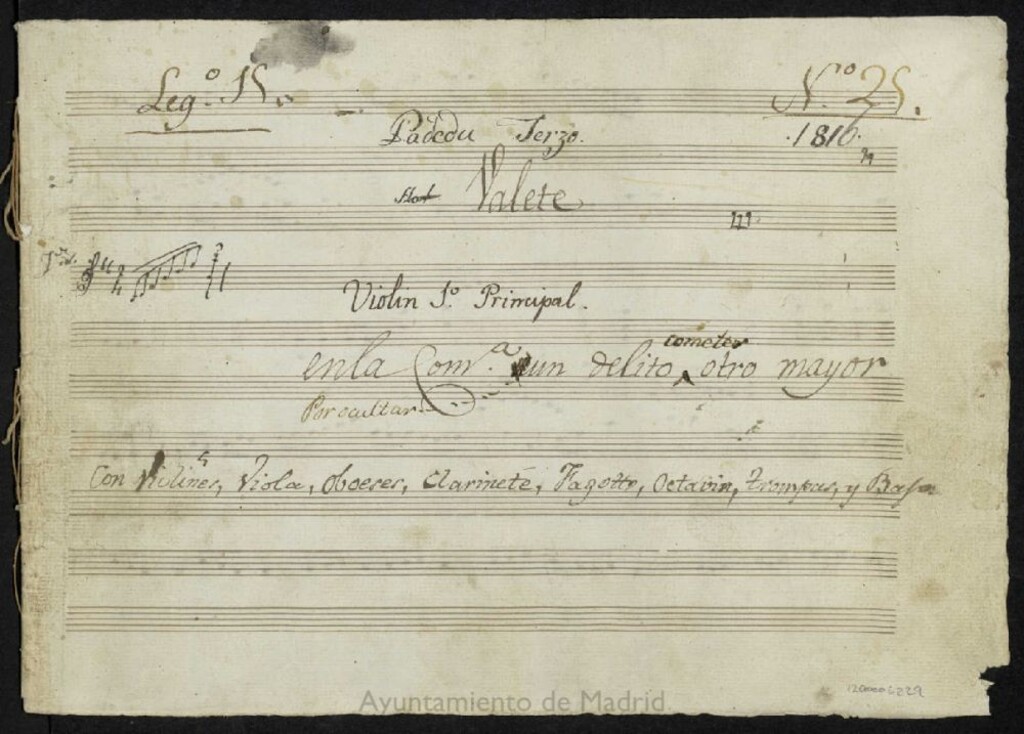 Leg.º 15.
N.º 25.
Padedu Terzo.
1816.
Valete
Violin 1.º Principal.
cometer
en la Com.ª un delito otro mayor
Por ocultar
Con Violines, Viola, Oboeses, Clarinete, Fagotto, Octavin, Trompas, y Bajo
Ayuntamiento de Madrid
1200006229